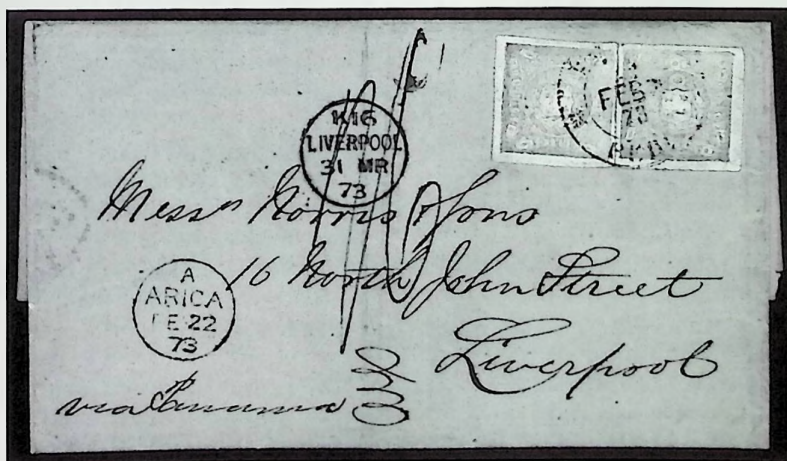 K16
LIVERPOOL
31 MR
73
FEB
Messrs Norris & Sons
16 North John Street
Liverpool
A
ARICA
FE 22
73
via Panama